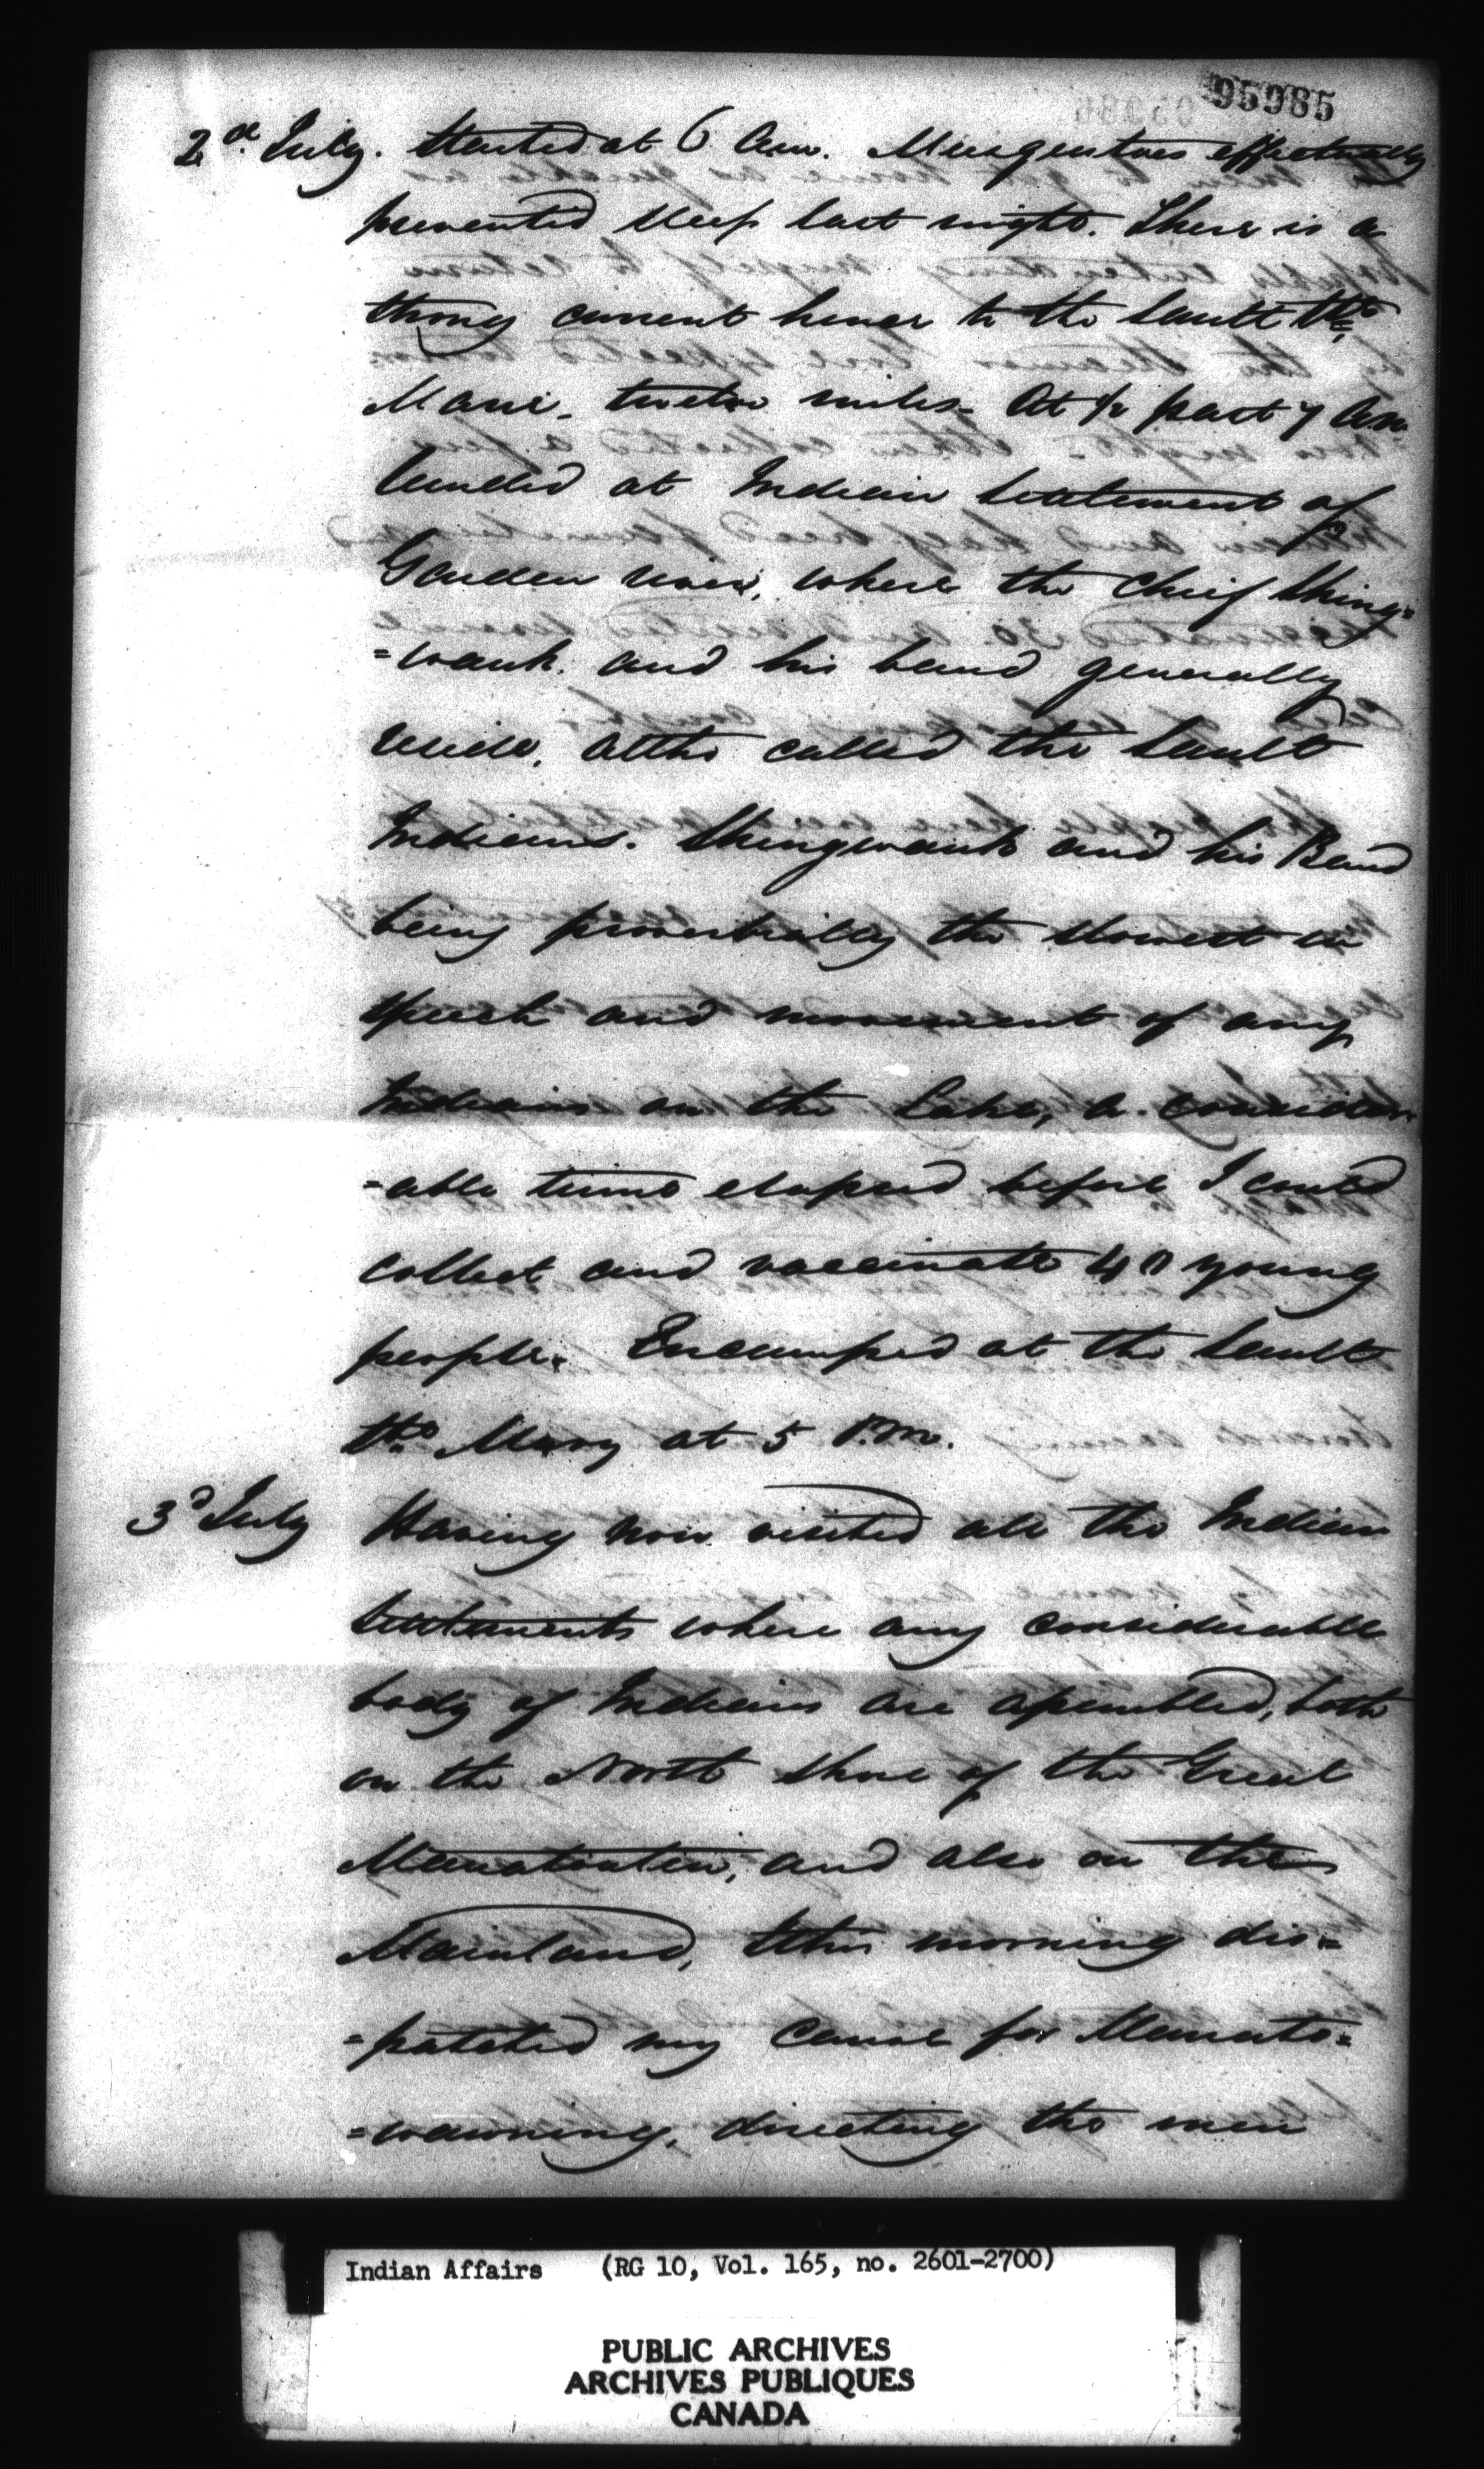 95985
2d. July. Started at 6 a.m. Musquitoes effectually
prevented sleep last night. There is a
strong current hence to the Sault Ste
Marie, twelve miles. At ½ past 7 a.m.
landed at Indian Settlement of
Garden river, where the Chief Shing=
=wauk. and his band generally
reside, altho called the Sault
Indians. Shingwauk and his Band
being proverbially the slowest in
speech and movement of any
Indians on the Lake, a consider=
=able time elapsed before I could
collect and vaccinate 40 young
people. Encamped at the Sault
Ste Mary at 5 P.m.
3d July Having now visited all the Indian
Settlements where any considerable
body of Indians are assembled, both
on the North Shore of the Great
Manatoulin, and also on the
Mainland, this morning dis=
=patched my Canoe for Manato=
=wawning, directing the men
Indian Affairs (RG 10, Vol. 165, no. 2601-2700)
PUBLIC ARCHIVES
ARCHIVES PUBLIQUES
CANADA